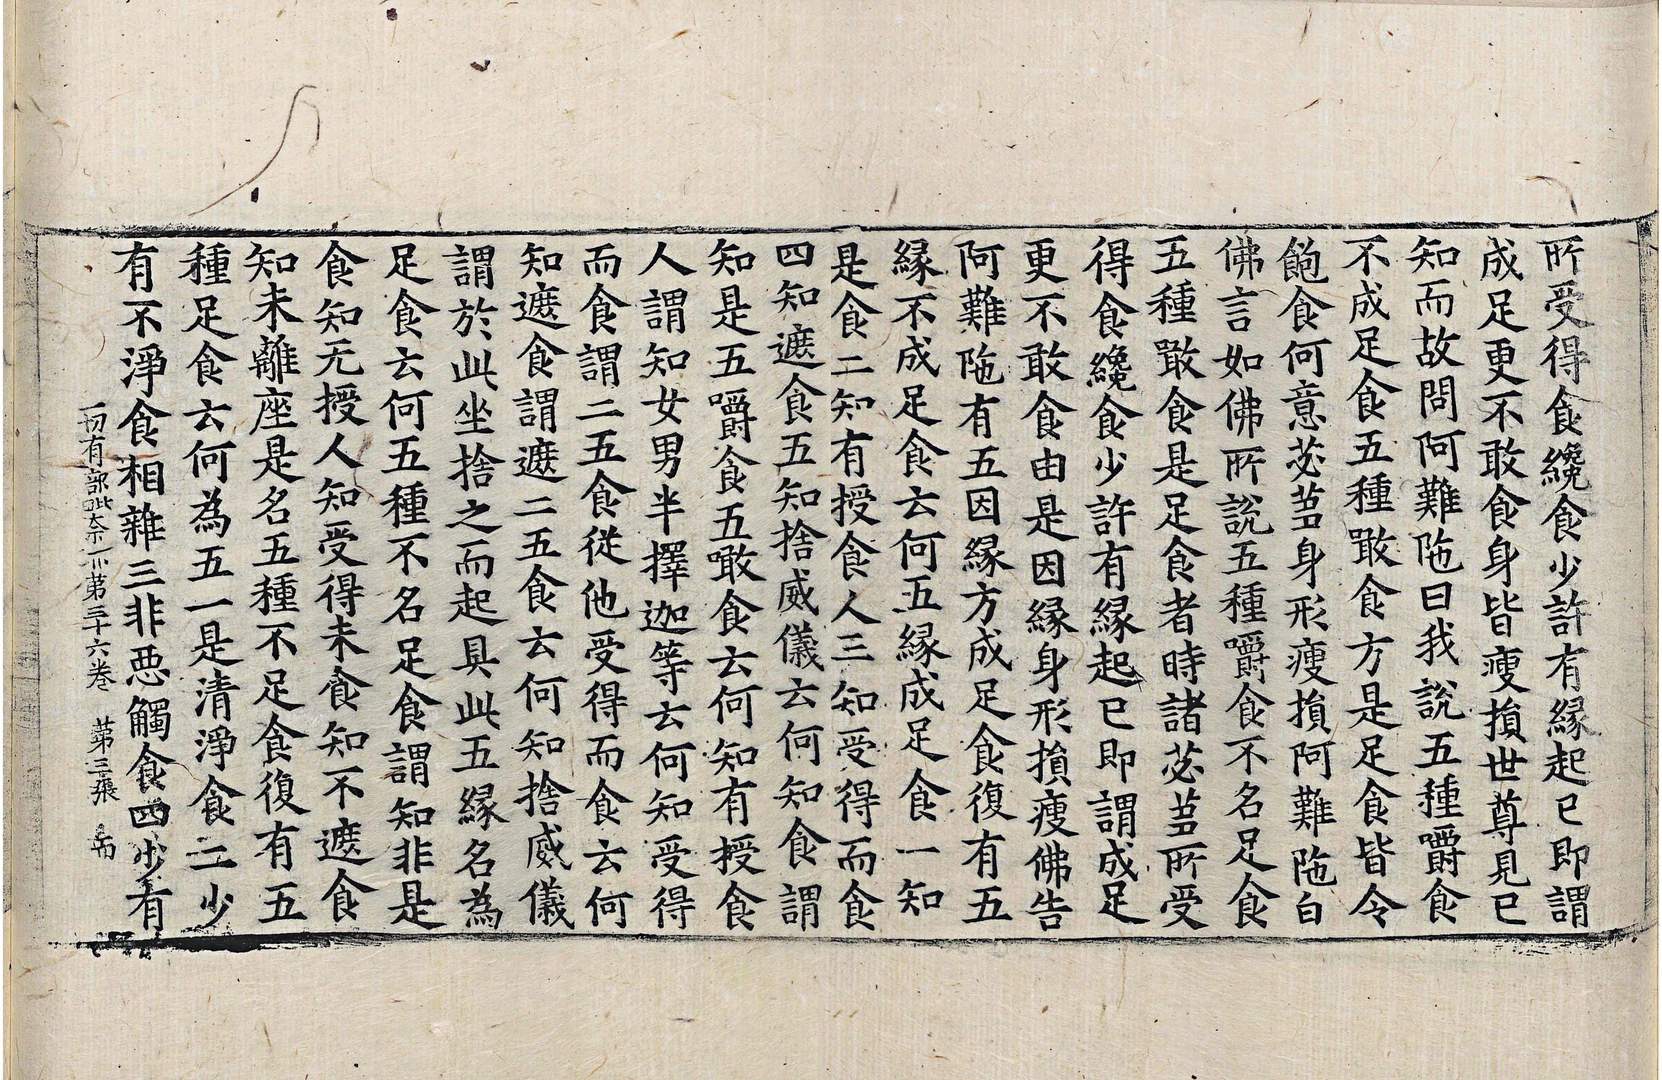 所受得食纔食少許有緣起已即謂
成足更不敢食身皆瘦損世尊見已
知而故問阿難陁曰我說五種嚼食
不成足食五種噉食方是足食皆令
飽食何意苾芻身形瘦損阿難陁白
佛言如佛所說五種嚼食不名足食
五種噉食是足食者時諸苾芻所受
得食纔食少許有緣起已即謂成足
更不敢食由是因緣身形損瘦佛告
阿難陁有五因緣方成足食復有五
緣不成足食云何五緣成足食一知
是食二知有授食人三知受得而食
四知遮食五知捨威儀云何知食謂
知是五嚼食五噉食云何知有授食
人謂知女男半擇迦等云何知受得
而食謂二五食從他受得而食云何
知遮食謂遮二五食云何知捨威儀
謂於此坐捨之而起具此五緣名為
足食云何五種不名足食謂知非是
食知无授人知受得未食知不遮食
知未離座是名五種不足食復有五
種足食云何為五一是清淨食二少
有不淨食相雜三非惡觸食四少有
一切有部毗奈耶第三十六卷　第三張